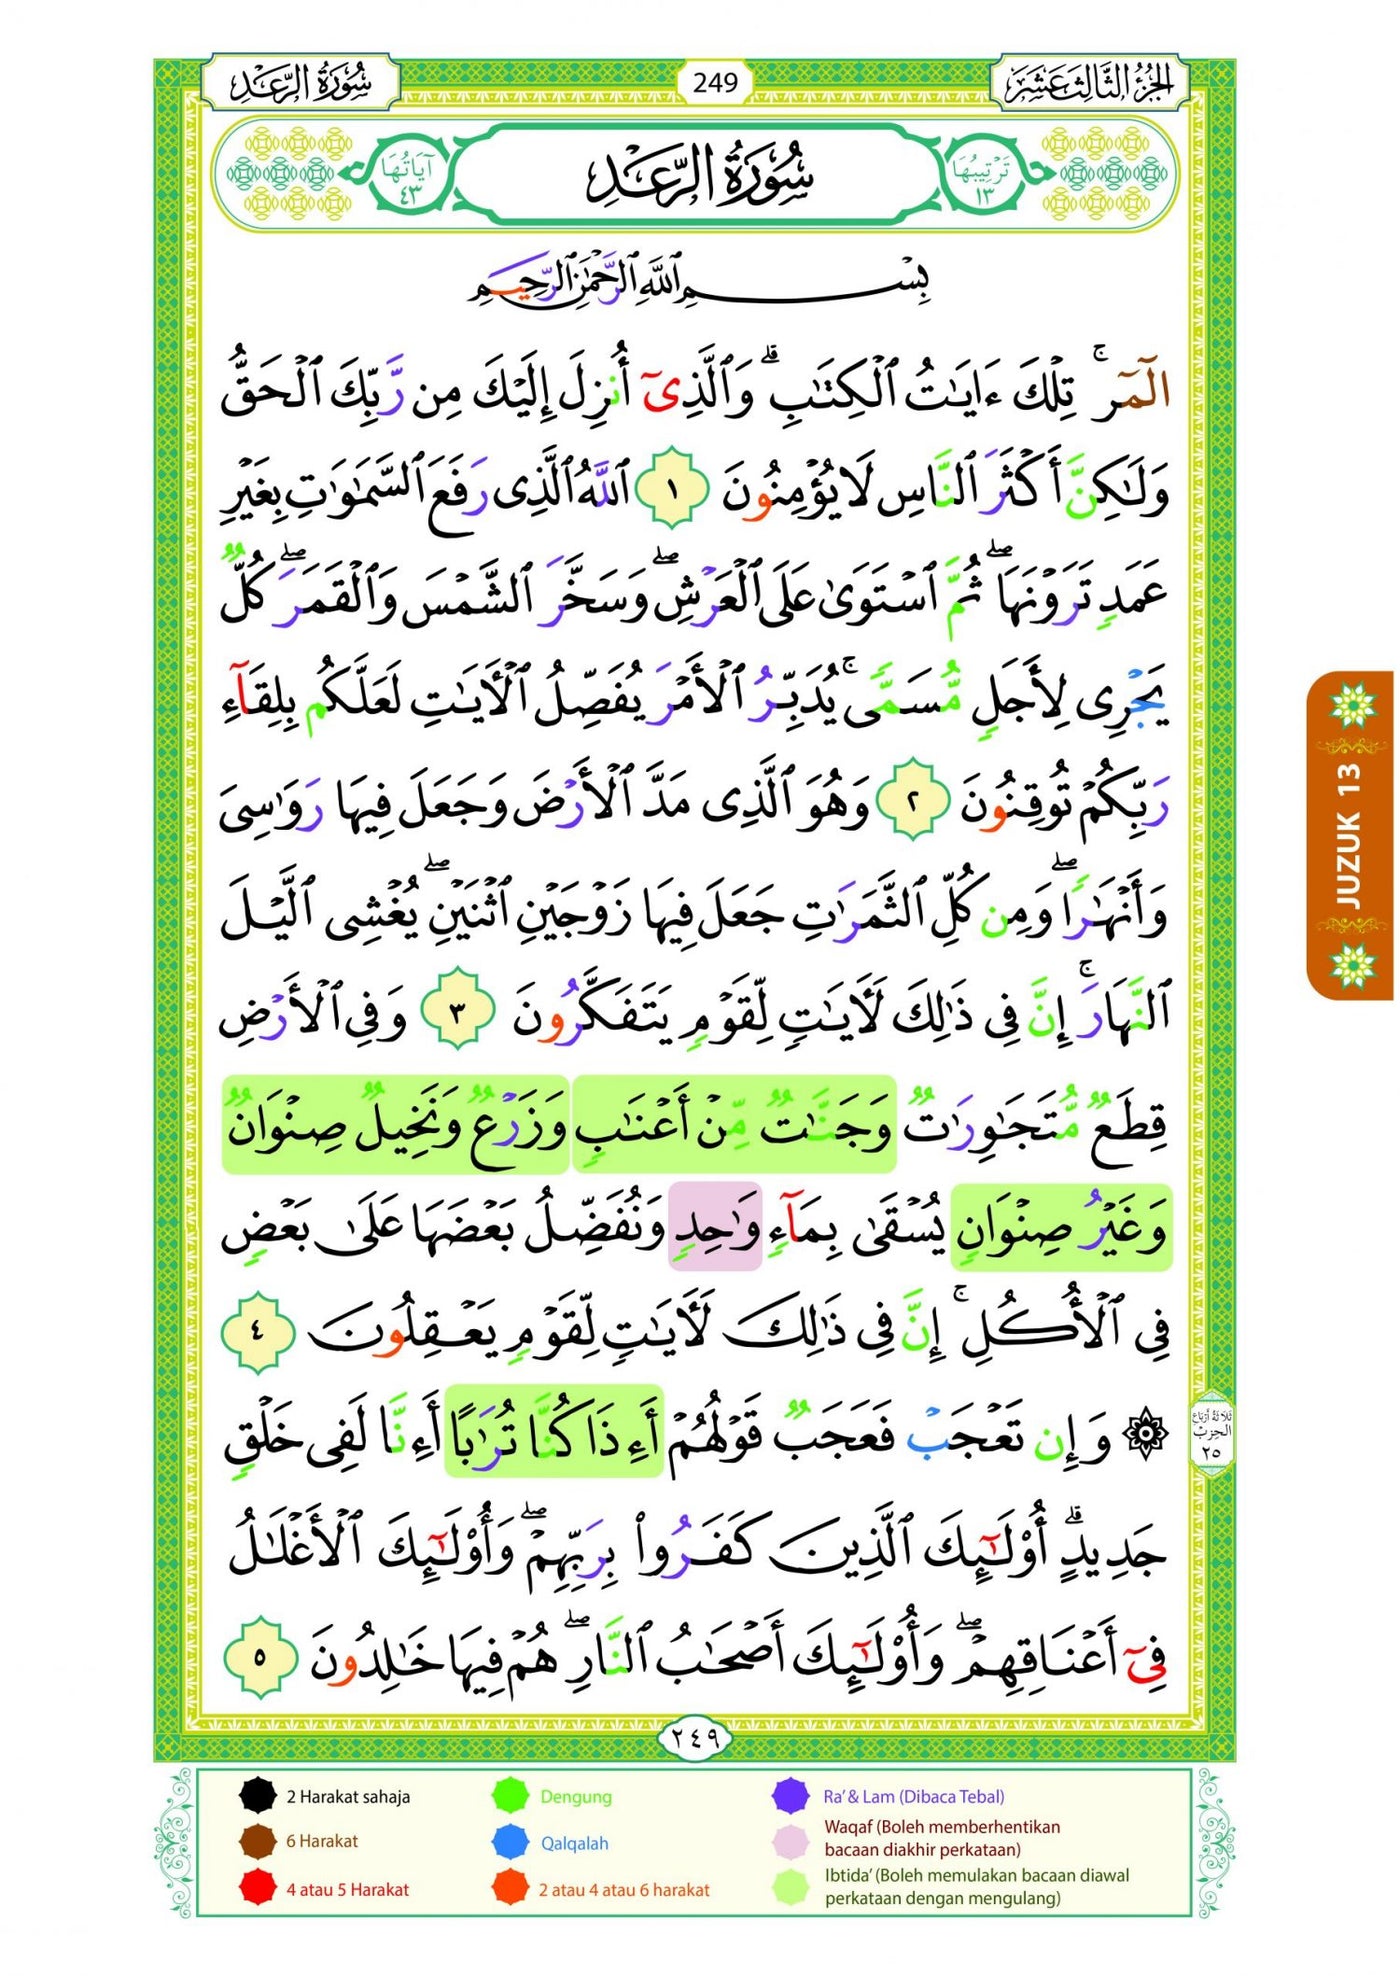 الجُزْءُ الثَّالِثَ عَشَرَ
249
سُورَةُ الرَّعْدِ
تَرْتِيبُهَا ١٣
سُورَةُ الرَّعْدِ
آيَاتُهَا ٤٣
بِسْمِ ٱللَّهِ ٱلرَّحْمَٰنِ ٱلرَّحِيمِ
الٓمٓرۚ تِلْكَ ءَايَٰتُ ٱلْكِتَٰبِۗ وَٱلَّذِىٓ أُنزِلَ إِلَيْكَ مِن رَّبِّكَ ٱلْحَقُّ
وَلَٰكِنَّ أَكْثَرَ ٱلنَّاسِ لَا يُؤْمِنُونَ ١ ٱللَّهُ ٱلَّذِى رَفَعَ ٱلسَّمَٰوَٰتِ بِغَيْرِ
عَمَدٍ تَرَوْنَهَاۖ ثُمَّ ٱسْتَوَىٰ عَلَى ٱلْعَرْشِۖ وَسَخَّرَ ٱلشَّمْسَ وَٱلْقَمَرَۖ كُلٌّ
يَجْرِى لِأَجَلٍ مُّسَمًّىۚ يُدَبِّرُ ٱلْأَمْرَ يُفَصِّلُ ٱلْأَيَٰتِ لَعَلَّكُم بِلِقَآءِ
رَبِّكُمْ تُوقِنُونَ ٢ وَهُوَ ٱلَّذِى مَدَّ ٱلْأَرْضَ وَجَعَلَ فِيهَا رَوَٰسِىَ
وَأَنْهَٰرًاۖ وَمِن كُلِّ ٱلثَّمَرَٰتِ جَعَلَ فِيهَا زَوْجَيْنِ ٱثْنَيْنِۖ يُغْشِى ٱلَّيْلَ
ٱلنَّهَارَۚ إِنَّ فِى ذَٰلِكَ لَأَيَٰتٍ لِّقَوْمٍ يَتَفَكَّرُونَ ٣ وَفِى ٱلْأَرْضِ
قِطَعٌ مُّتَجَٰوِرَٰتٌ وَجَنَّٰتٌ مِّنْ أَعْنَٰبٍ وَزَرْعٌ وَنَخِيلٌ صِنْوَانٌ
وَغَيْرُ صِنْوَانٍ يُسْقَىٰ بِمَآءٍ وَٰحِدٍ وَنُفَضِّلُ بَعْضَهَا عَلَىٰ بَعْضٍ
فِى ٱلْأُكُلِۚ إِنَّ فِى ذَٰلِكَ لَأَيَٰتٍ لِّقَوْمٍ يَعْقِلُونَ ٤
۞ وَإِن تَعْجَبْ فَعَجَبٌ قَوْلُهُمْ أَءِذَا كُنَّا تُرَٰبًا أَءِنَّا لَفِى خَلْقٍ
ثَلَاثَةُ أَرْبَاعِ
الْحِزْبِ
٢٥
جَدِيدٍۗ أُوْلَٰٓئِكَ ٱلَّذِينَ كَفَرُوا۟ بِرَبِّهِمْۖ وَأُوْلَٰٓئِكَ ٱلْأَغْلَٰلُ
فِىٓ أَعْنَاقِهِمْۖ وَأُوْلَٰٓئِكَ أَصْحَٰبُ ٱلنَّارِۖ هُمْ فِيهَا خَٰلِدُونَ ٥
٢٤٩
JUZUK 13
2 Harakat sahaja
6 Harakat
4 atau 5 Harakat
Dengung
Qalqalah
2 atau 4 atau 6 harakat
Ra' & Lam (Dibaca Tebal)
Waqaf (Boleh memberhentikan
bacaan diakhir perkataan)
Ibtida' (Boleh memulakan bacaan diawal
perkataan dengan mengulang)